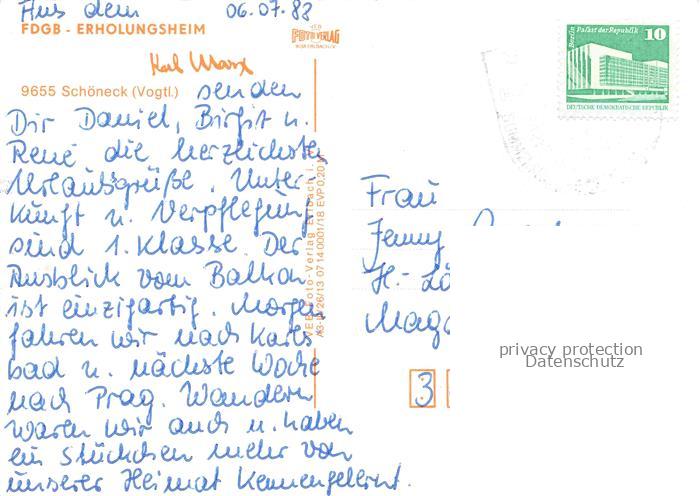 Aus dem 06.07.83
FDGB - ERHOLUNGSHEIM
Karl Marx
9655 Schöneck (Vogtl.) senden
Dir Daniel, Birgit u.
René die herzlichsten
Urlaubsgrüße. Unter-
kunft u. Verpflegung
sind 1. Klasse. Der
Ausblick vom Balkon
ist einzigartig. Morgen
fahren wir nach Karls
bad u. nächste Woche
nach Prag. Wandern
waren wir auch u. haben
ein Stückchen mehr von
unserer Heimat kennengelernt.
FOTO VERLAG
Berlin Palast der Republik 10
DEUTSCHE DEMOKRATISCHE REPUBLIK
Frau
Jenny
H.-Lö
Magd
3
privacy protection
Datenschutz